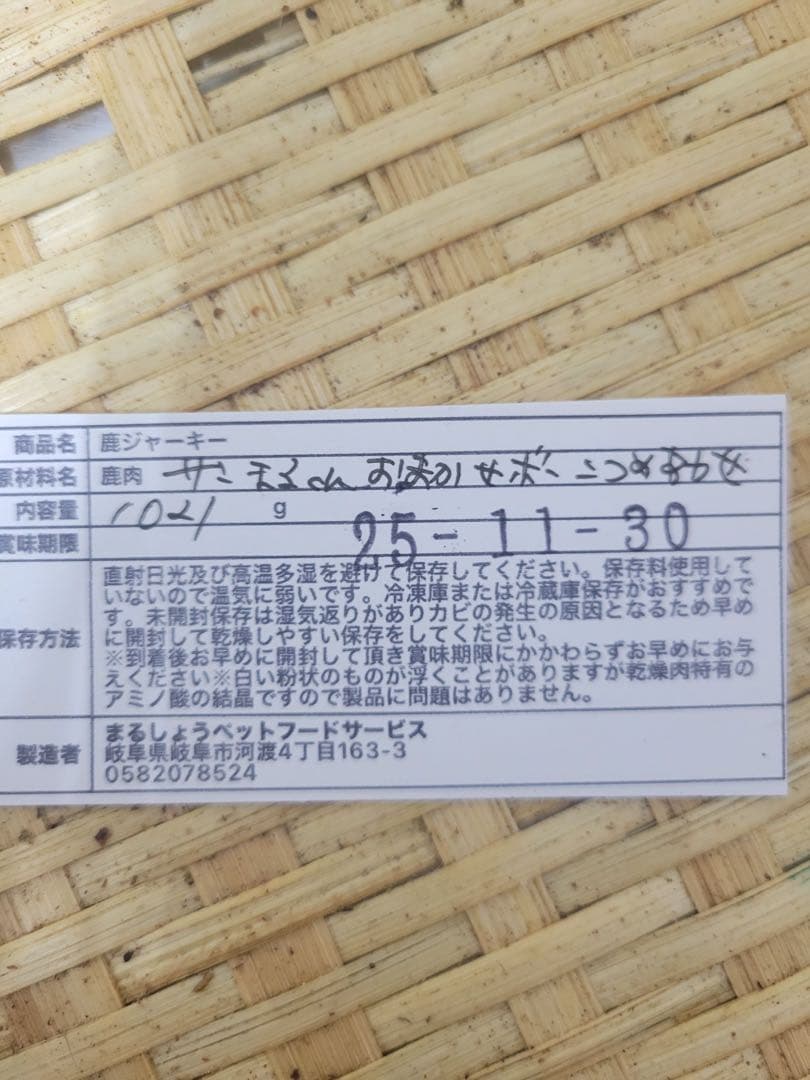 商品名 鹿ジャーキー
原材料名 鹿肉 おまかせボーンつめあわせ
内容量 1021 g
賞味期限 25-11-30
直射日光及び高温多湿を避けて保存してください。保存料使用して
いないので温気に弱いです。冷凍庫または冷蔵庫保存がおすすめで
す。未開封保存は湿気返りがありカビの発生の原因となるため早め
保存方法 に開封して乾燥しやすい保存をしてください。
※到着後お早めに開封して頂き賞味期限にかかわらずお早めにお与
えください※白い粉状のものが浮くことがありますが乾燥肉特有の
アミノ酸の結晶ですので製品に問題はありません。
まるしょうペットフードサービス
製造者 岐阜県岐阜市河渡4丁目163-3
0582078524